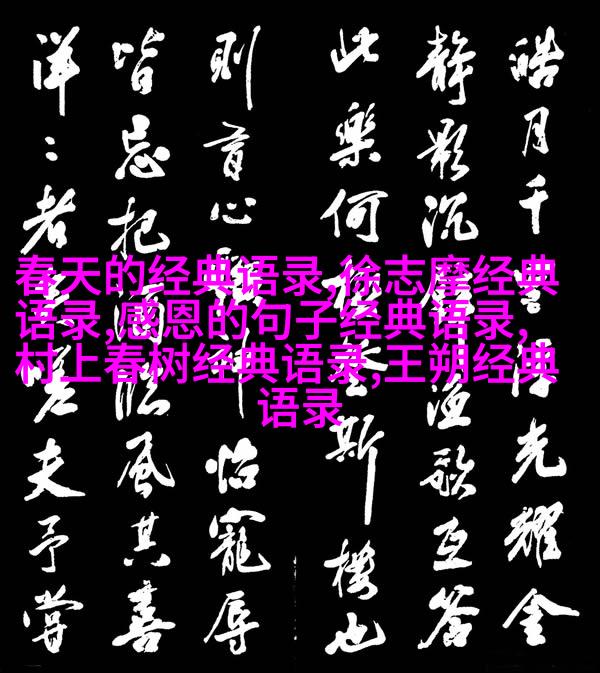 皓月千里浮光耀金
静影沉渔歌互答
此樂何極登斯樓也
則有心怡寵辱
皆忘把酒臨風其喜
洋:者矣嗟夫予嘗
春天的经典语录,徐志摩经典
语录,感恩的句子经典语录,
村上春树经典语录,王朔经典
语录